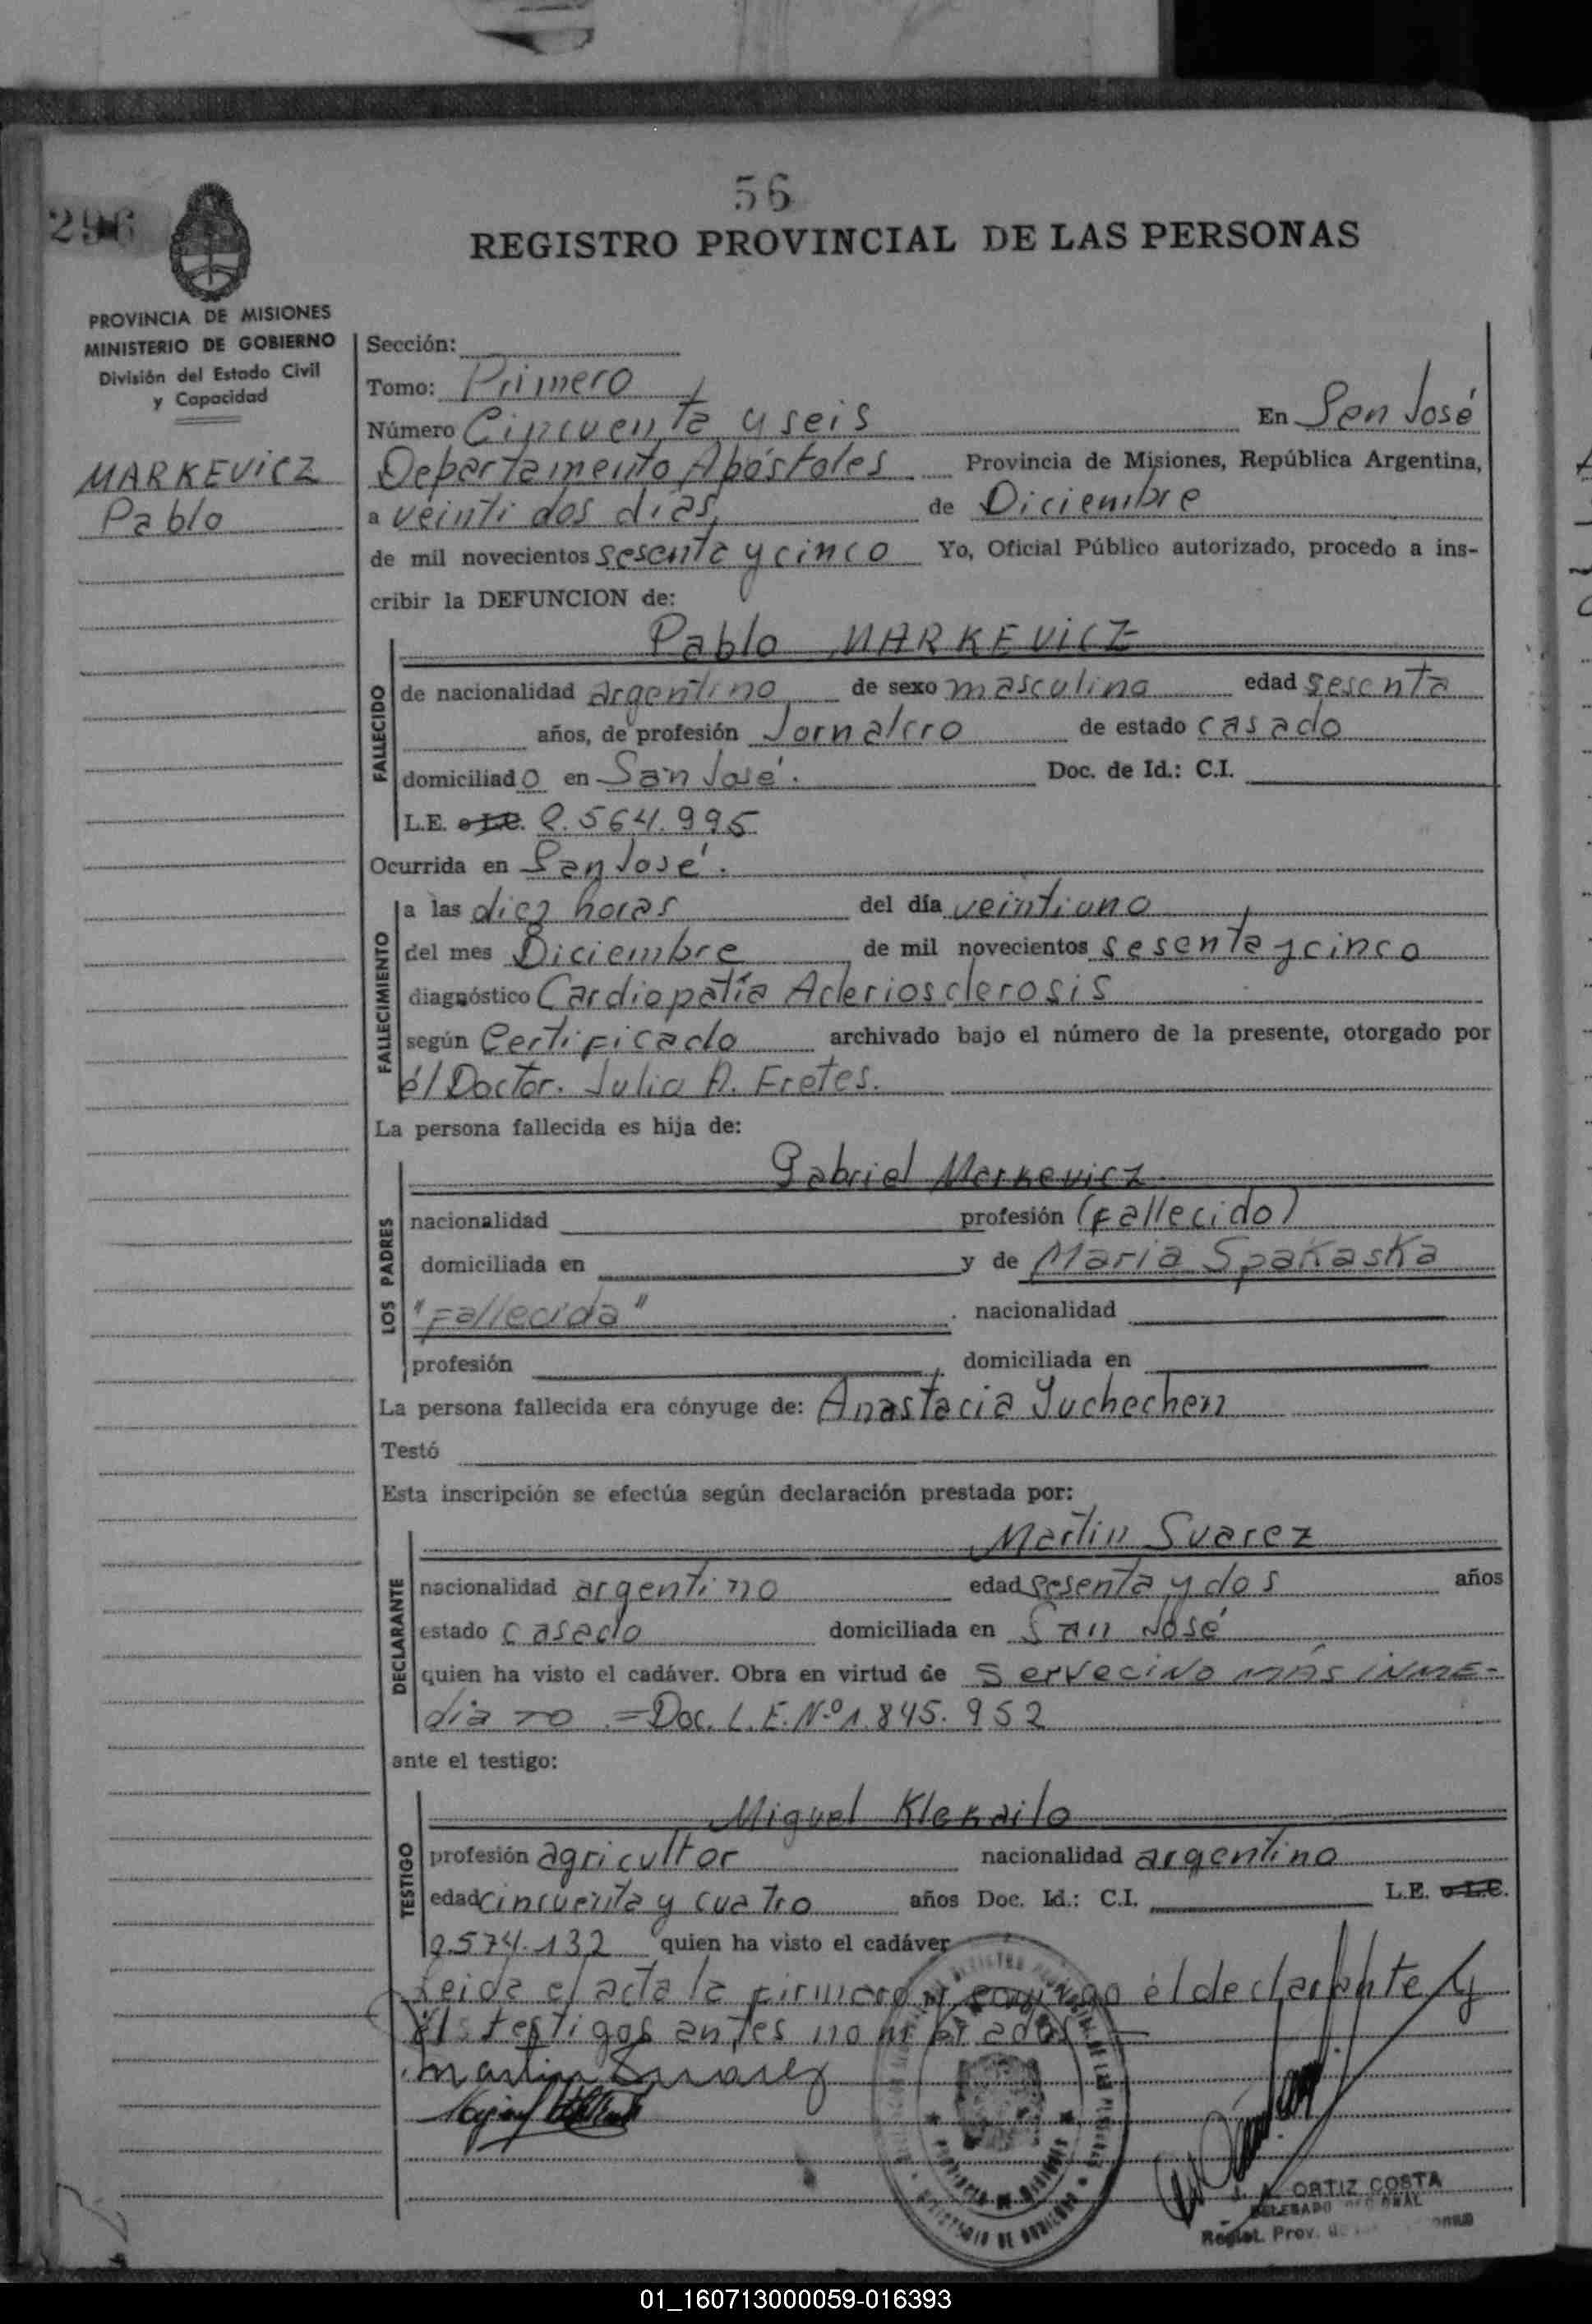 56
296
REGISTRO PROVINCIAL DE LAS PERSONAS
PROVINCIA DE MISIONES
MINISTERIO DE GOBIERNO
División del Estado Civil
y Capacidad
MARKEVICZ
Pablo
Sección:
Tomo: Primero
Número Cincuenta y seis En San José
Departamento Apóstoles Provincia de Misiones, República Argentina,
a veinti dos días de Diciembre
de mil novecientos sesenta y cinco Yo, Oficial Público autorizado, procedo a ins-
cribir la DEFUNCION de:
Pablo MARKEVICZ
FALLECIDO
de nacionalidad argentino de sexo masculino edad sesenta
años, de profesión Jornalero de estado casado
domiciliado en San José. Doc. de Id.: C.I.
L.E. o L.C. 564.995
Ocurrida en San José.
FALLECIMIENTO
a las diez horas del día veintiuno
del mes Diciembre de mil novecientos sesenta y cinco
diagnóstico Cardiopatía Acleriosclerosis
según Certificado archivado bajo el número de la presente, otorgado por
él Doctor. Julio A. Fretes.
La persona fallecida es hija de:
Gabriel Markevicz
LOS PADRES
nacionalidad profesión (fallecido)
domiciliada en y de Maria Spakaska
"Fallecida" nacionalidad
profesión domiciliada en
La persona fallecida era cónyuge de: Anastacia Juchechen
Testó
Esta inscripción se efectúa según declaración prestada por:
Martin Suarez
DECLARANTE
nacionalidad argentino edad sesenta y dos años
estado casado domiciliada en San José
quien ha visto el cadáver. Obra en virtud de ser vecino más inme-
diato = Doc. L.E. Nº 1.845.952
ante el testigo:
Miguel Klekailo
TESTIGO
profesión agricultor nacionalidad argentino
edad cincuenta y cuatro años Doc. Id.: C.I. L.E. o L.C.
574.132 quien ha visto el cadáver
Leida el acta la firmaron conmigo él declarante y
testigos antes nombrados
Martin Suarez
ORTIZ COSTA
DELEGADO
Regist. Prov. de
01_160713000059-016393